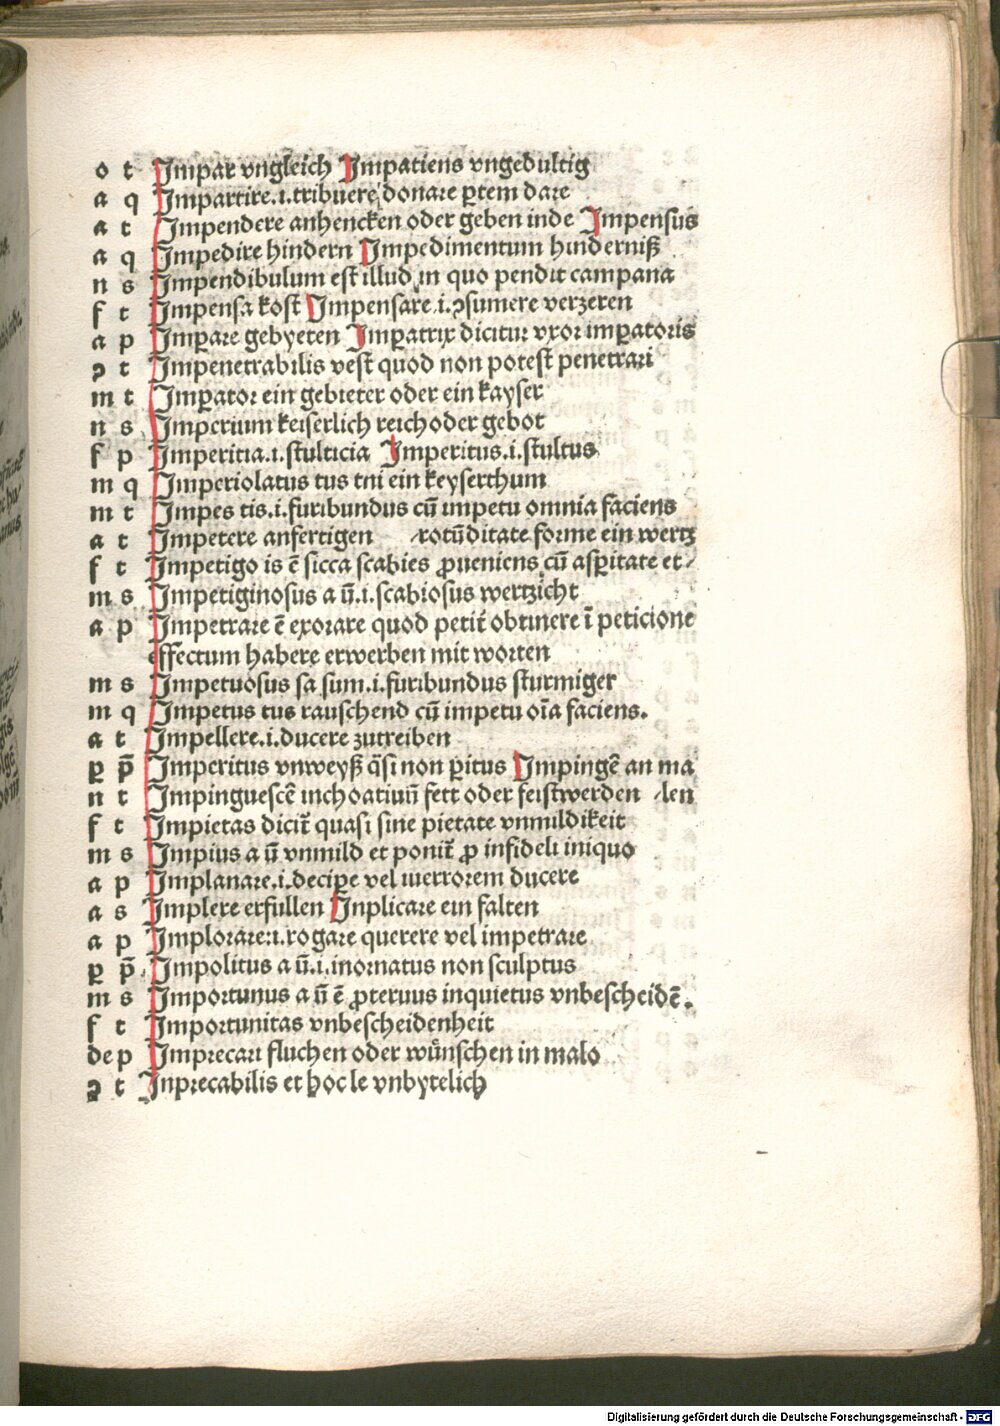 o t Impar vngleich Impatiens vngedultig
a q Impartire.i.tribuere donare ꝑtem dare
a t Impendere anhencken oder geben inde Impensus
a q Impedire hindern Impedimentum hinderniß
n s Impendibulum est illud in quo pendit campana
f t Impensa kost Impensare.i.ꝯsumere verzeren
a p Imꝑare gebyeten Imꝑatrix dicitur vxor imꝑatoris
ꝯ t Impenetrabilis vest quod non potest penetrari
m t Imꝑator ein gebieter oder ein kayser
n s Imperium keiserlich reich oder gebot
f p Imperitia.i.stulticia Imperitus.i.stultus
m q Imperiolatus tus tui ein keyserthum
m t Impes tis.i.furibundus cū impetu omnia faciens
a t Impetere anfertigen ⁄rotūditate forme ein wertz
f t Impetigo is ē sicca scabies ꝓueniens cū asꝑitate et⁄
m s Impetiginosus a ū.i.scabiosus wertzicht
a p Impetrare ē exorare quod petit̄ obtinere ī peticione
effectum habere erwerben mit worten
m s Impetuosus sa sum.i.furibundus sturmiger
m q Impetus tus rauschend cū impetu oīa faciens.
a t Impellere.i.ducere zutreiben
ꝑ p̄ Imperitus vnweyß q̄si non ꝑitus Impingē an ma
n t Impinguescē inchoatiuū fett oder feistwerden ⁄len
f t Impietas dicit̄ quasi sine pietate vnmildikeit
m s Impius a ū vnmild et ponit̄ ꝓ infideli iniquo
a p Implanare.i.deciꝑe vel in errorem ducere
a s Implere erfullen Inplicare ein falten
a p Implorare.i.rogare querere vel impetrare
ꝑ p̄ Impolitus a ū.i.inornatus non sculptus
m s Importunus a ū ē ꝓteruus inquietus vnbescheidē.
f t Importunitas vnbescheidenheit
de p Imprecari fluchen oder wünschen in malo
ꝯ t Inprecabilis et hoc le vnbytelich
Digitalisierung gefördert durch die Deutsche Forschungsgemeinschaft - DFG